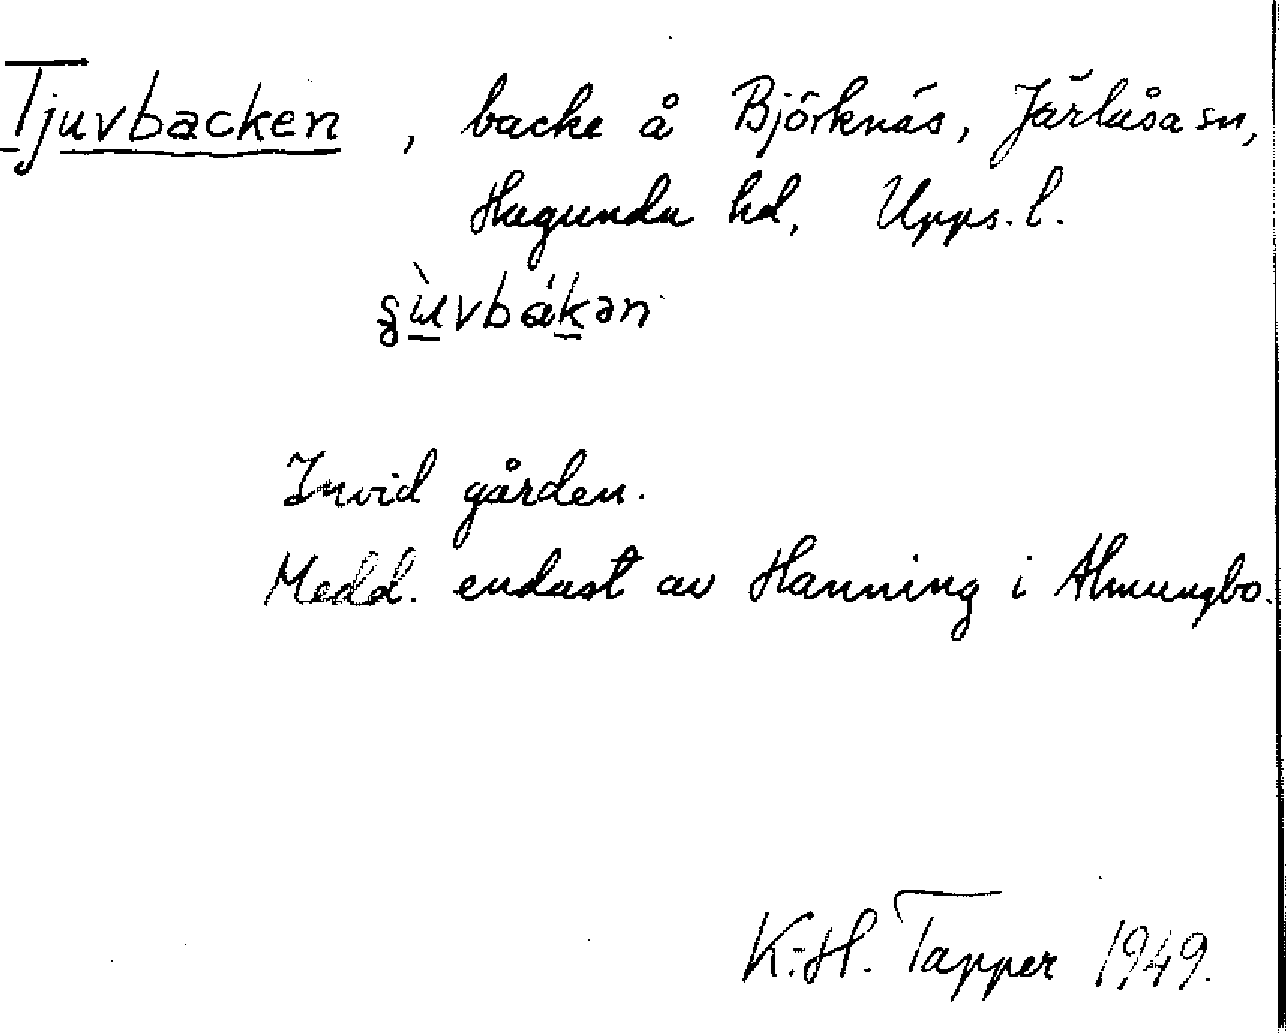 Tjuvbacken, backe å Björknäs, Järlåsa sn,
Hagunda hd, Upps. l.
Invid gården.
Medd. endast av Hanning i Älmungbo.
K.-H. Tapper 1949.